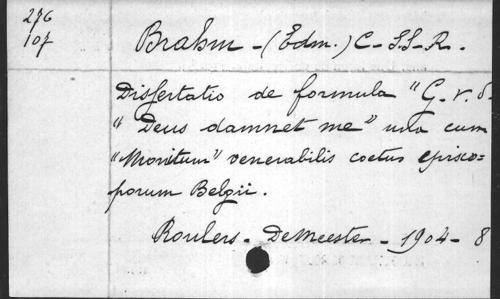 276
107
Brahm - (Edm.) C - S.S - R.
Dissertatio de formula "G. v. d.
"Deus damnet me" una cum
"Monitum" venerabilis coetus episco=
porum Belgii.
Roulers - DeMeester - 1904 - 8